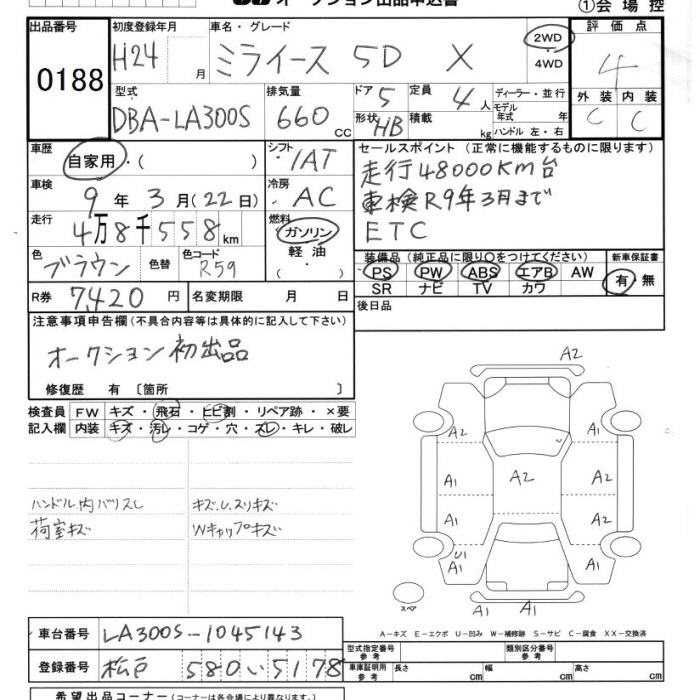 オークション出品申込書 ①会場控
出品番号 0188
初度登録年月 H24 月
車名・グレード ミライース 5D X
2WD・4WD
評価点 4
外装 C 内装 C
型式 DBA-LA300S
排気量 660 CC
ドア 5 定員 4 人
形状 HB 積載 kg
ディーラー・並行
モデル年式 年
ハンドル 左・右
車歴 自家用・( )
シフト IAT
車検 9年3月(22日)
冷房 AC
走行 4万8千558km
燃料 ガソリン・軽油・( )
色 ブラウン 色替 色コード R59
R券 7,420円 名変期限 月 日
セールスポイント (正常に機能するものに限ります)
走行48000KM台
車検R9年3月まで
ETC
装備品 (純正品に限り○をつけてください) 新車保証書
PS PW ABS エアB AW 有・無
SR ナビ TV カワ
後日品
注意事項申告欄(不具合内容等は具体的に記入して下さい)
オークション初出品
修復歴 有 〔箇所 〕
検査員 FW キズ・飛石・ヒビ割・リペア跡・×要
記入欄 内装 キズ・汚レ・コゲ・穴・スレ・キレ・破レ
ハンドル内バリスレ キズU.スリキズ
荷室キズ Wキャップキズ
A2
A2 A2
A1 A2 A1
A1 A1
U1
A1 A1
A1 A1
スペア
A-キズ E-エクボ U-凹み W-補修跡 S-サビ C-腐食 XX-交換済
車台番号 LA300S-1045143
登録番号 松戸 580 い 5178
型式指定番号 参考 類別区分番号 参考
車庫証明用 参考 長さ cm 幅 cm 高さ cm
希望出品コーナー(コーナーは各会場により異なります)